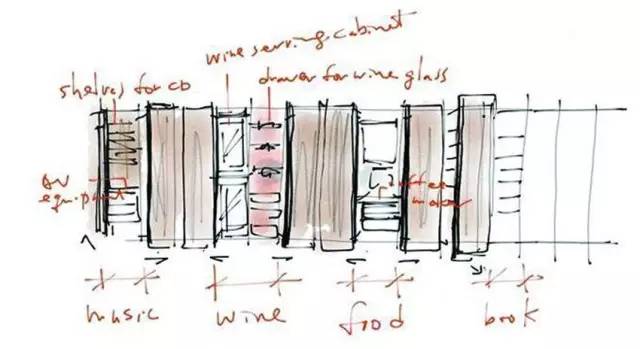 wine serving cabinet
shelves for CD
drawer for wine glass
AV
equipment
coffee
maker
music
wine
food
book